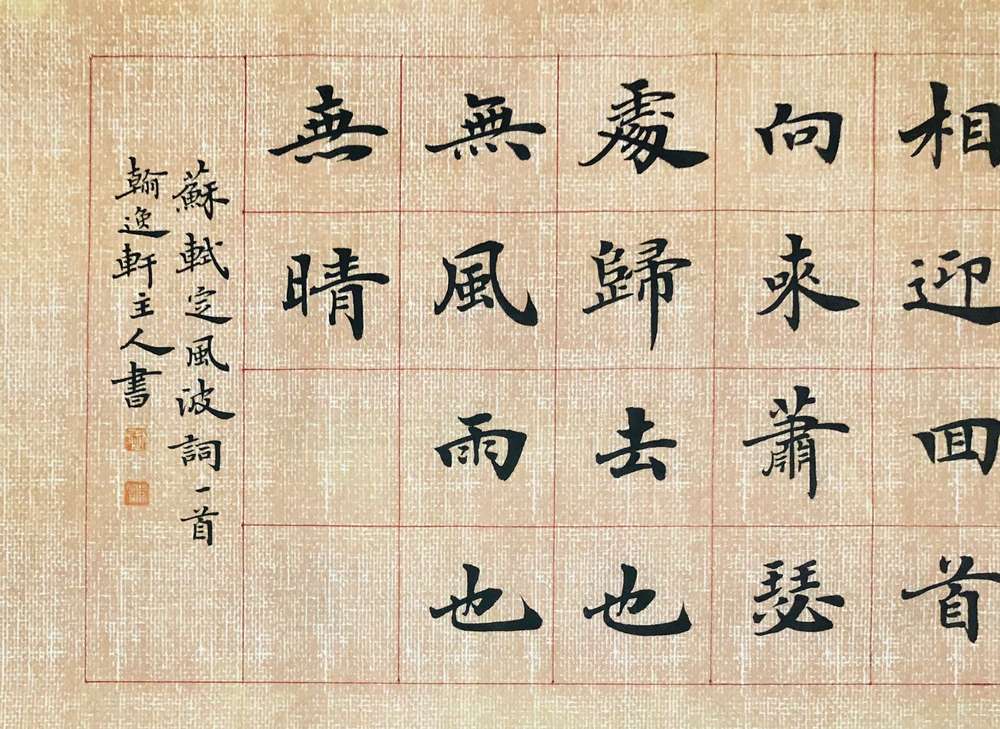 相迎回首
向來蕭瑟
處歸去也
無風雨也
無晴
蘇軾定風波詞一首
翰逸軒主人書